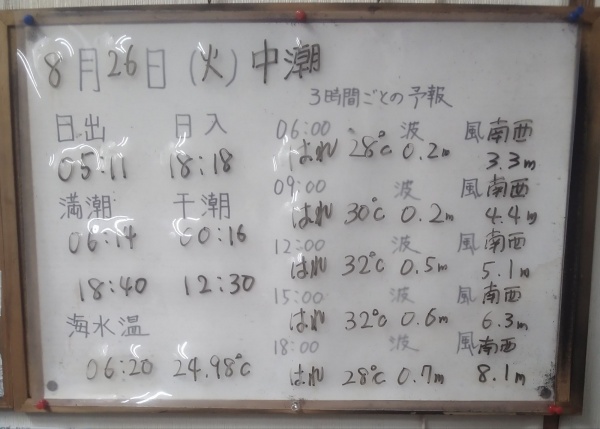 8月26日(火)中潮
日出 日入
05:11 18:18
満潮 干潮
06:14 00:16
18:40 12:30
海水温
06:20 24.98℃
3時間ごとの予報
06:00 波 風南西
はれ 28℃ 0.2m 3.3m
09:00 波 風南西
はれ 30℃ 0.2m 4.4m
12:00 波 風南西
はれ 32℃ 0.5m 5.1m
15:00 波 風南西
はれ 32℃ 0.6m 6.3m
18:00 波 風南西
はれ 28℃ 0.7m 8.1m